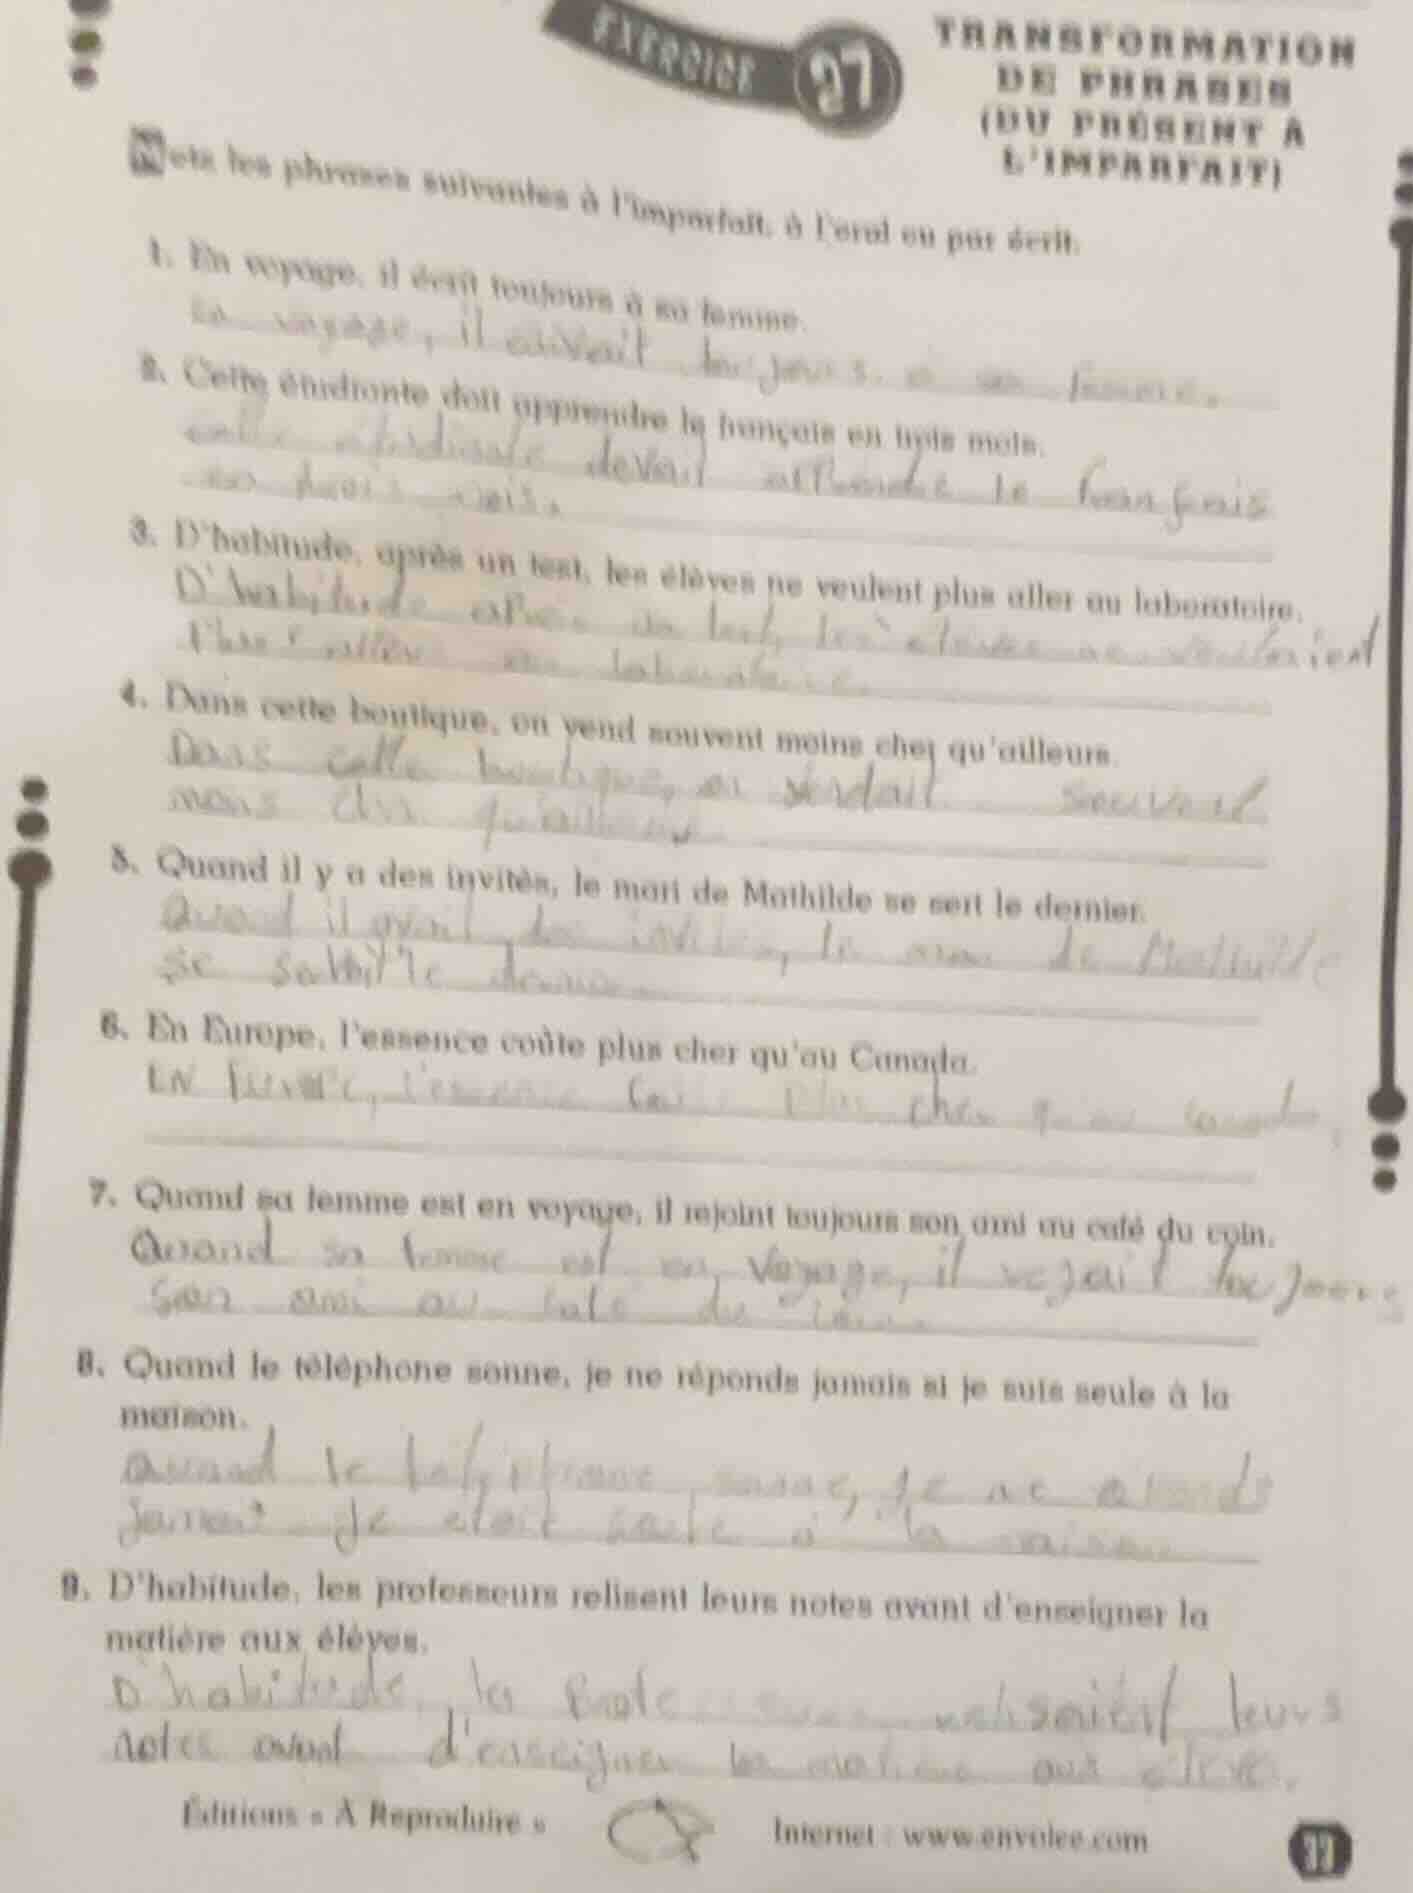 EXERCICE 27
TRANSFORMATION
DE PHRASES
(DU PRÉSENT À
L'IMPARFAIT)
Mets les phrases suivantes à l'imparfait, à l'oral ou par écrit.
1. En voyage, il écrit toujours à sa femme.
En voyage, il écrivait toujours à sa femme.
2. Cette étudiante doit apprendre le français en trois mois.
cette étudiante devait apprendre le français
en trois mois.
3. D'habitude, après un test, les élèves ne veulent plus aller au laboratoire.
D'habitude après un test, les élèves ne
plus aller au laboratoire.
4. Dans cette boutique, on vend souvent moins cher qu'ailleurs.
Dans cette boutique, on vendait souvent
moins cher qu'ailleurs
5. Quand il y a des invités, le mari de Mathilde se sert le dernier.
Quand il avait des invités, le mari de Mathilde
se le dernier
6. En Europe, l'essence coûte plus cher qu'au Canada.
EN Europe, l'essence plus cher qu'au canada.
7. Quand sa femme est en voyage, il rejoint toujours son ami au café du coin.
Quand sa femme est en voyage, il toujours
son ami au café du coin.
8. Quand le téléphone sonne, je ne réponds jamais si je suis seule à la
maison.
Quand le sonne, je ne
je était seule à la maison
9. D'habitude, les professeurs relisent leurs notes avant d'enseigner la
matière aux élèves.
D'habitude, les leurs
notes avant d'enseigner la matière aux élèves.
Éditions « À Reproduire »
Internet : www.envolee.com
33